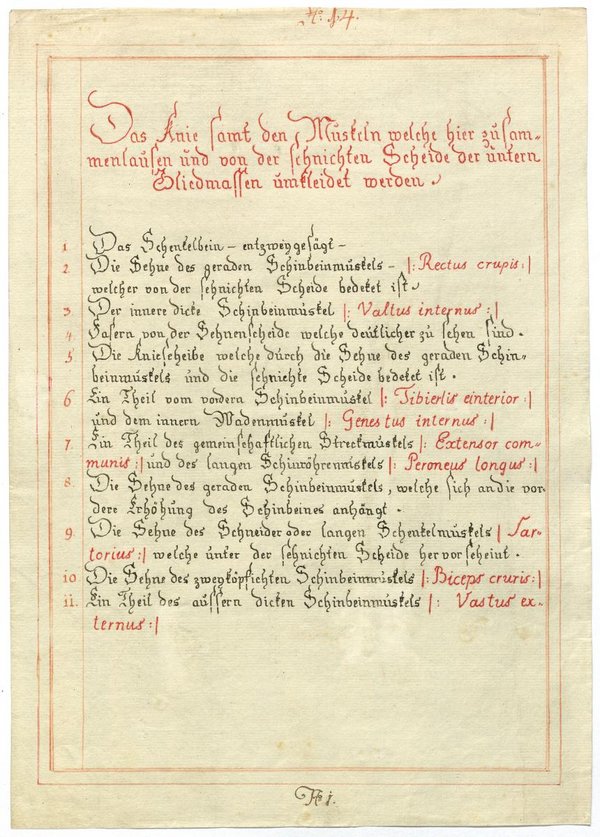 No. 14.
Das Knie samt den Muskeln welche hier zusam-
menlaufen und von der sehnichten Scheide der untern
Gliedmassen umkleidet werden.
1. Das Schenkelbein – entzweygesägt –
2. Die Sehne des geraden Schinbeinmuskels – |: Rectus crupis :|
welcher von der sehnichten Scheide bedeket ist
3. Der innere dicke Schinbeinmuskel |: Valtus internus :|
4. Fasern von der Sehnenscheide welche deutlicher zu sehen sind.
5. Die Kniescheibe welche durch die Sehne des geraden Schin-
beinmuskels und die sehnichte Scheide bedeket ist.
6. Ein Theil vom vordern Schinbeinmuskel |: Tibierlis einterior :|
und dem innern Wadenmuskel |: Genestus internus :|
7. Ein Theil des gemeinschaftlichen Streckmuskels |: Extensor com-
munis :| und des langen Schinröhrenmuskels |: Peroneus longus :|
8. Die Sehne des geraden Schinbeinmuskels, welche sich an die vor-
dere Erhöhung des Schinbeines anhängt.
9. Die Sehne des Schneider oder langen Schenkelmuskels | Sar-
torius :| welche unter der sehnichten Scheide hervorscheint.
10. Die Sehne des zweyköpfichten Schinbeinmuskels |: Biceps cruris :|
11. Ein Theil des aussern dicken Schinbeinmuskels |: Vastus ex-
ternus :|
No 1.